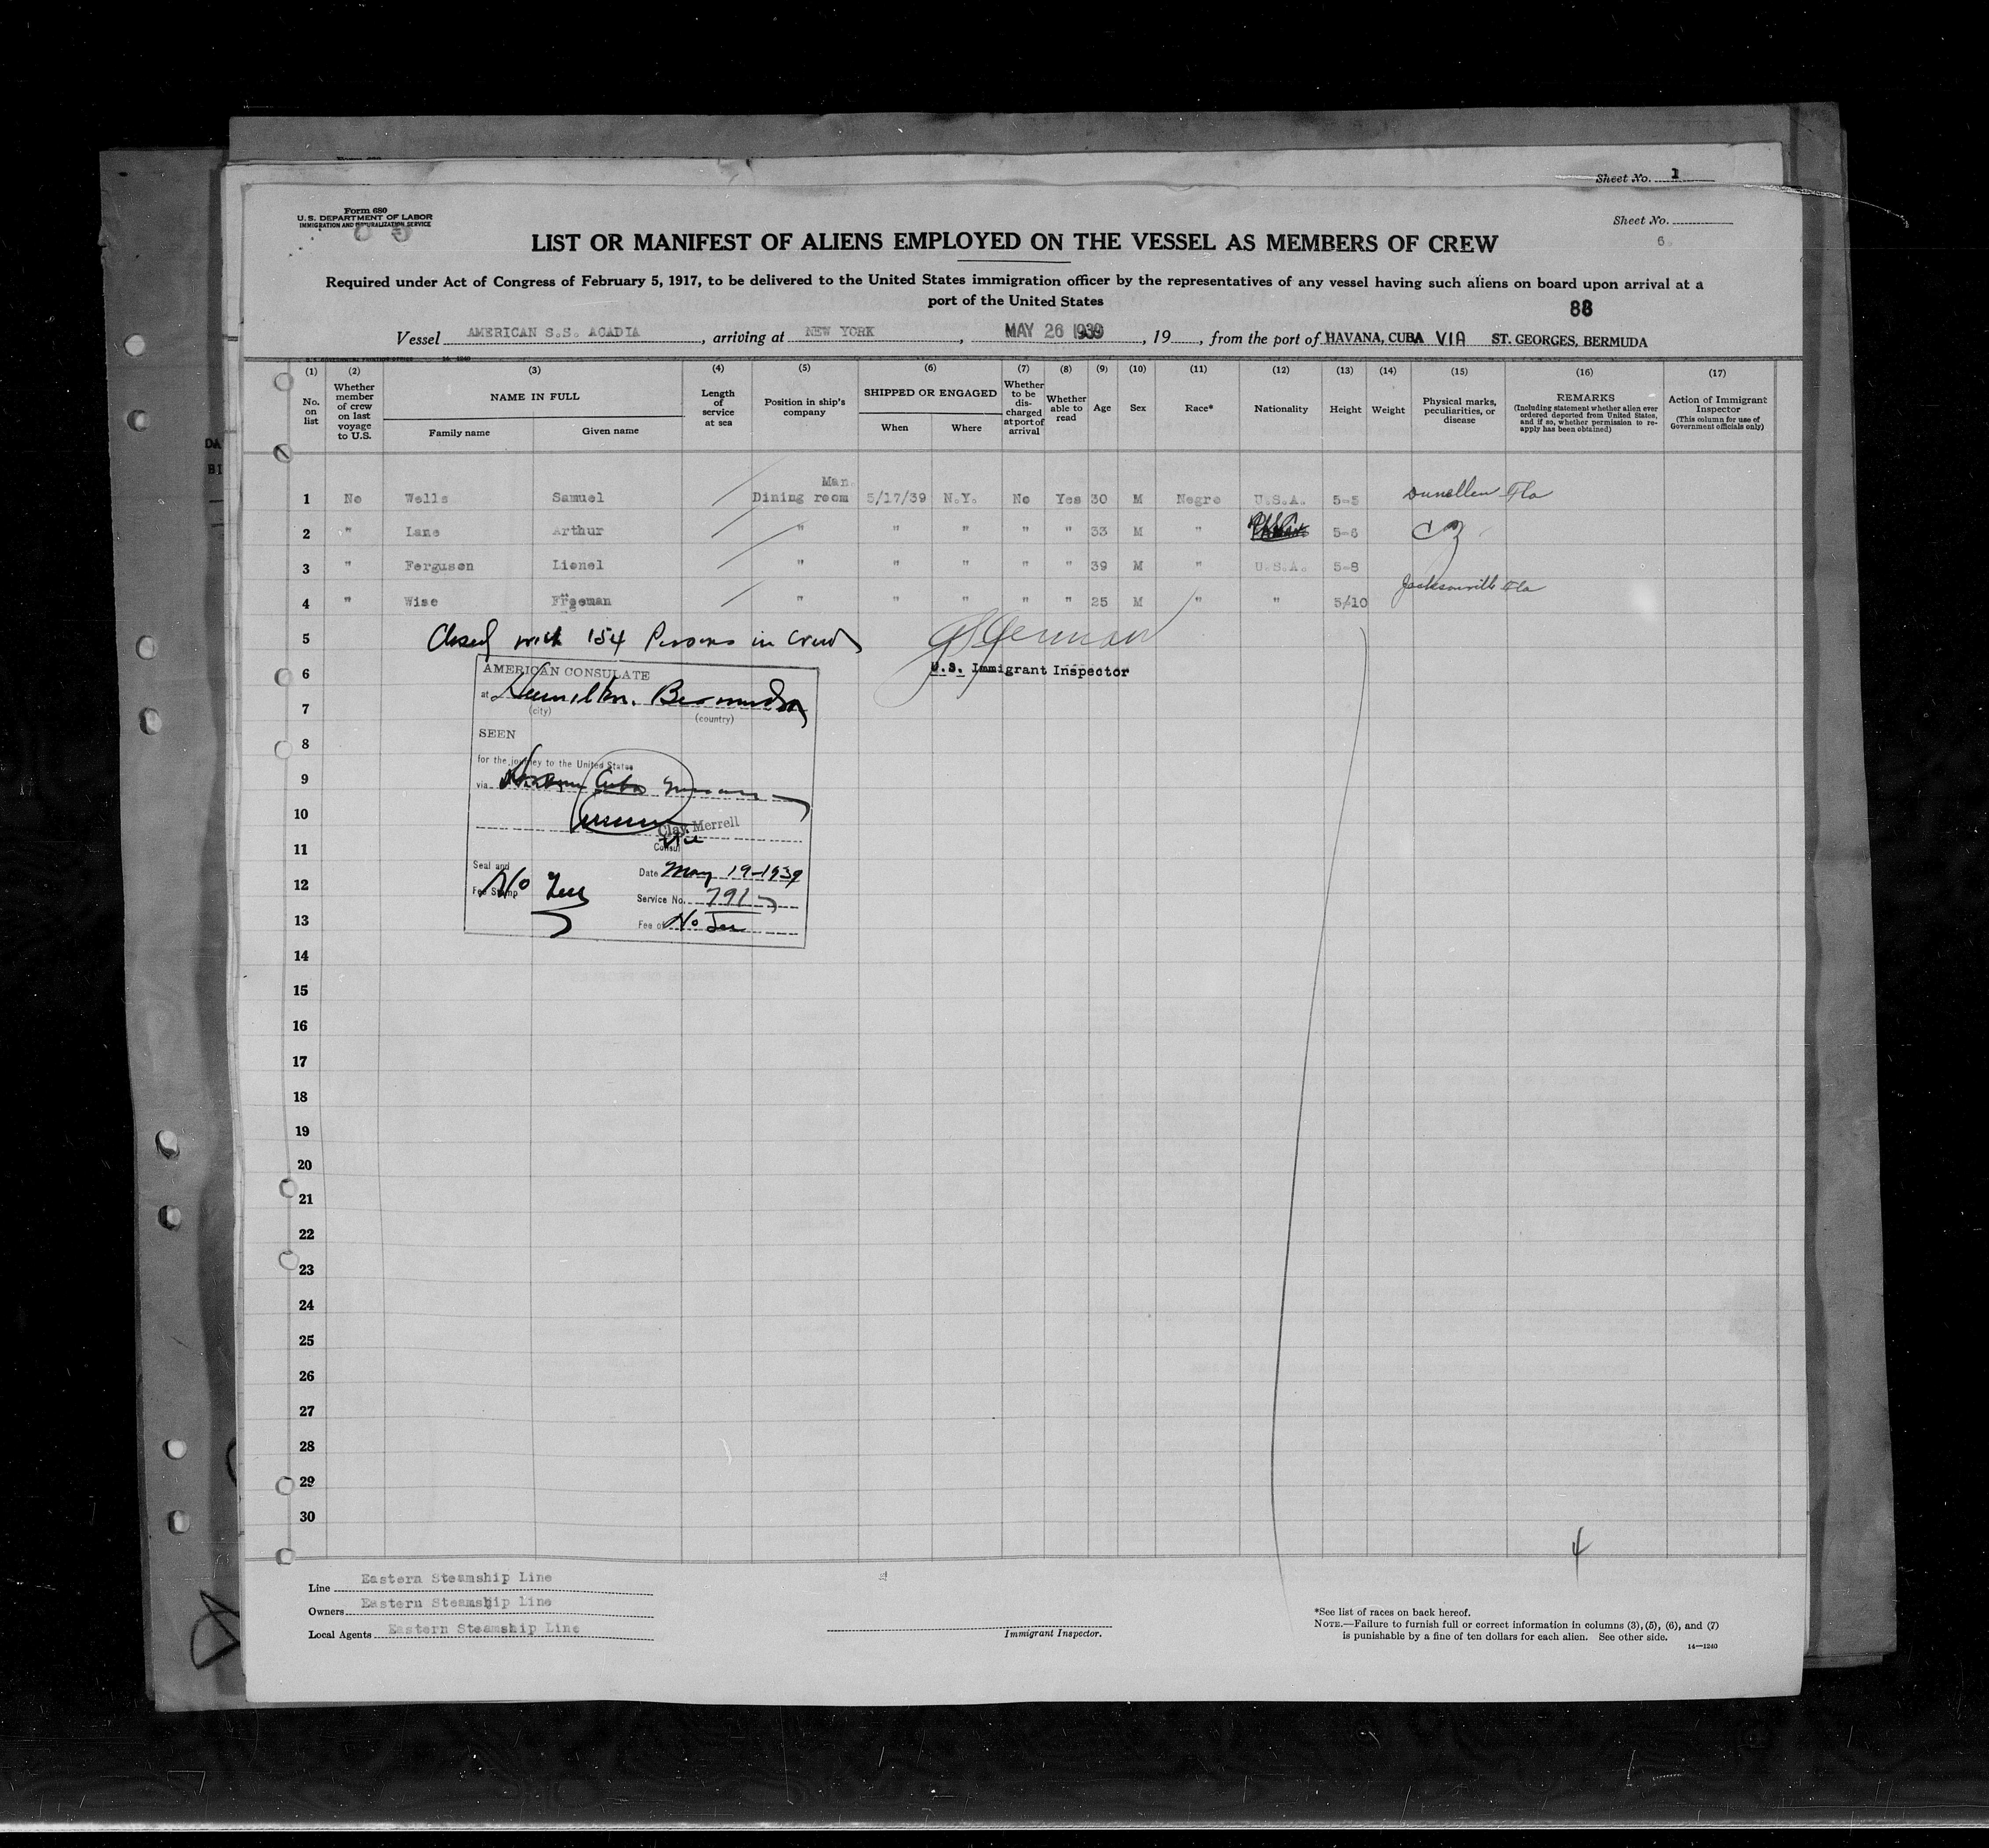 Sheet No. 1
Form 680
U.S. DEPARTMENT OF LABOR
IMMIGRATION AND NATURALIZATION SERVICE
Sheet No.
6.
LIST OR MANIFEST OF ALIENS EMPLOYED ON THE VESSEL AS MEMBERS OF CREW
Required under Act of Congress of February 5, 1917, to be delivered to the United States immigration officer by the representatives of any vessel having such aliens on board upon arrival at a
port of the United States
88
Vessel AMERICAN S.S. ACADIA, arriving at NEW YORK, MAY 26 1939, 19, from the port of HAVANA, CUBA VIA ST. GEORGES, BERMUDA
(1) (2) (3) (4) (5) (6) (7) (8) (9) (10) (11) (12) (13) (14) (15) (16) (17)
No. on list
Whether member of crew on last voyage to U.S.
NAME IN FULL
Family name
Given name
Length of service at sea
Position in ship's company
SHIPPED OR ENGAGED
When
Where
Whether to be discharged at port of arrival
Whether able to read
Age
Sex
Race*
Nationality
Height
Weight
Physical marks, peculiarities, or disease
REMARKS
(Including statement whether alien ever ordered deported from United States, and if so, whether permission to re-apply has been obtained)
Action of Immigrant Inspector
(This column for use of Government officials only)
Man.
1 No Wells Samuel Dining room 5/17/39 N.Y. No Yes 30 M Negro U.S.A. 5-5 Dunellen Fla
2 " Lane Arthur " " " " " 33 M " 5-6 CZ
3 " Ferguson Lionel " " " " " 39 M " U.S.A. 5-8
Jacksonville Fla
4 " Wise Freeman " " " " " 25 M " " 5/10
5 Closed with 154 Persons in Crew
6 U.S. Immigrant Inspector
AMERICAN CONSULATE
at Hamilton, Bermuda
(city) (country)
7
SEEN
8
for the journey to the United States
9
via
10
Clay Merrell
11
Vice
Consul
Seal and
Fee Stamp
No Fee
Date May 19-1939
12
Service No. 791
13
Fee of No Fee
14
15
16
17
18
19
20
21
22
23
24
25
26
27
28
29
30
4
Line Eastern Steamship Line
Owners Eastern Steamship Line
Local Agents Eastern Steamship Line
Immigrant Inspector.
*See list of races on back hereof.
NOTE.—Failure to furnish full or correct information in columns (3), (5), (6), and (7)
is punishable by a fine of ten dollars for each alien. See other side.
14—1240